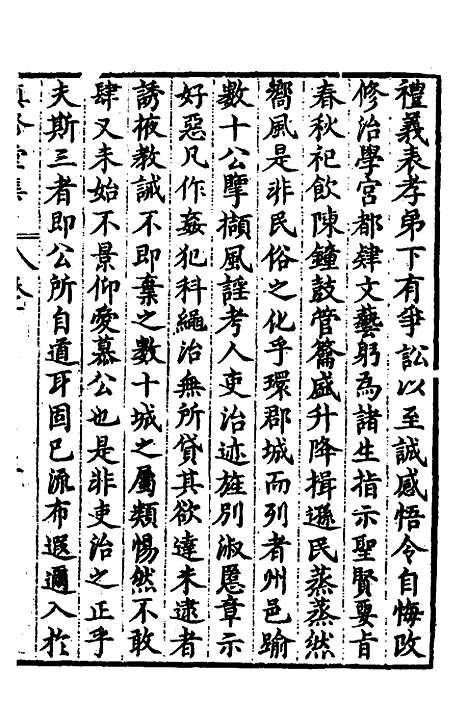 禮義表孝弟下有爭訟以至誠感悟令自悔改
修治學宮都肄文藝躬為諸生指示聖賢要旨
春秋祀飲陳鐘鼓管籥盛升降揖遜民蒸蒸然
嚮風是非民俗之化乎環郡城而列者州邑踰
數十公擘擷風謠考人吏治迹旌別淑慝章示
好惡凡作姦犯科繩治無所貸其欲違未逮者
誘掖教誡不即棄之數十城之屬類惕然不敢
肆又未始不景仰愛慕公也是非吏治之正乎
夫斯三者即公所自道耳固已流布遐邇入於